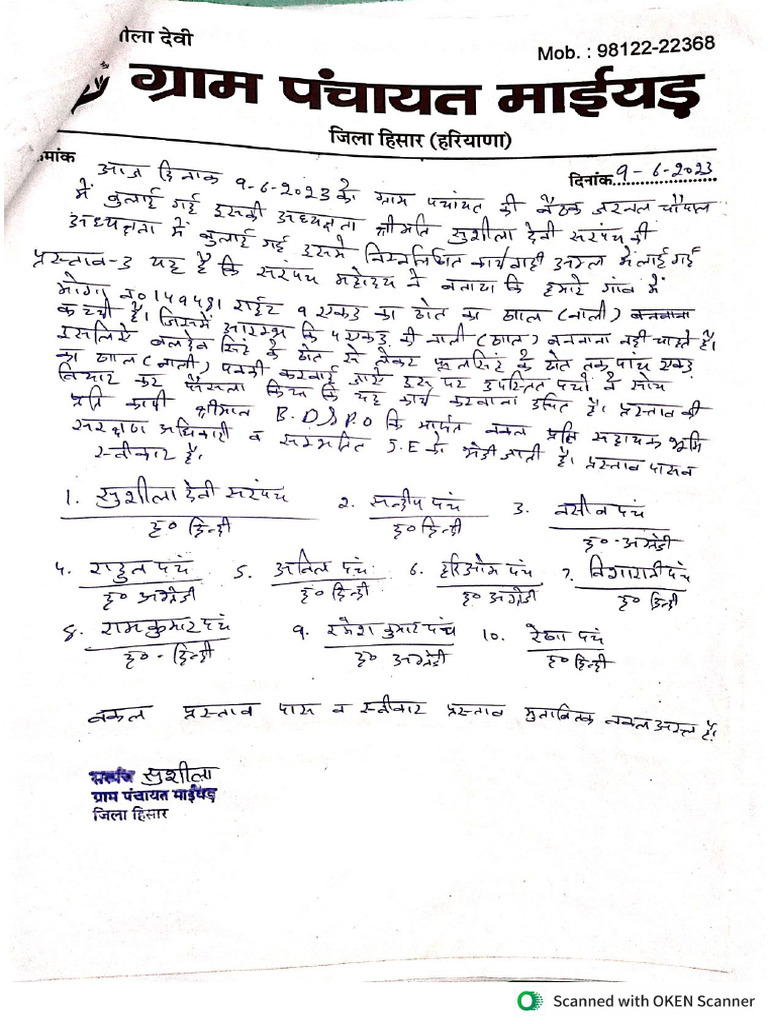 ीला देवी
Mob. : 98122-22368
ग्राम पंचायत माईयड़
जिला हिसार (हरियाणा)
मांक
दिनांक 9-6-2023
आज दिनाक 9-6-2023 को ग्राम पचांयत की बैठक जरनल चौपाल
में बुलाई गई इसकी अध्यक्षता श्रीमति सुशीला देवी सरपंच की
अध्यक्षता में बुलाई गई इसमे निम्नलिखित कार्यवाही अमल मे लाई गई
प्रस्ताव-3 यह है कि सरपंच महोदय ने बताया कि हमारे गांव में
मोगा न० राईट 9 एकड का खेत का खाल (नाली)
कच्ची है। जिसमें आरम्भ कि 5 एकड की नाली (खाल) बनवाना नही चाहते है।
इसलिऐ बलदेव सिंह के खेत से लेकर फूलसिंह के खेत तक पांच एकड
का खाल (नाली) पक्की करवाई जाऐ इस पर उपस्थित पचों ने सोच
विचार कर फैसला किया कि यह कार्य करवाना उचित है। प्रस्ताव की
प्रति कापी श्रीमान B.D.P.O कि मार्फत नकल प्रति सहायक भूमि
सरक्षण अधिकारी व सम्बन्धित J.E को भेजी जाती है। प्रस्ताव पास व
स्वीकार है।
1. सुशीला देवी सरपंच 2. सन्दीप पंच 3. नसीब पंच
ह० हिन्दी ह० हिन्दी ह०-अग्रेजी
4. राहुल पंच 5. अनिल पंच 6. हरिओम पंच 7. पंच
ह० अग्रेजी ह० हिन्दी ह० अग्रेजी ह० हिन्दी
8. रामकुमार पंच 9. रमेश कुमार पंच 10. रेखा पंच
ह०-हिन्दी ह० अग्रेजी ह० हिन्दी
नकल प्रस्ताव पास व स्वीकार प्रस्ताव मुताबिक नकल असल है।
सरपंच सुशीला
ग्राम पंचायत माईयड़
जिला हिसार
Scanned with OKEN Scanner